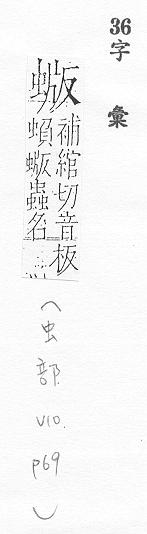 36
字彙
蝂
補綰切音板
蝜蝂蟲名
(虫部 V10. p69)